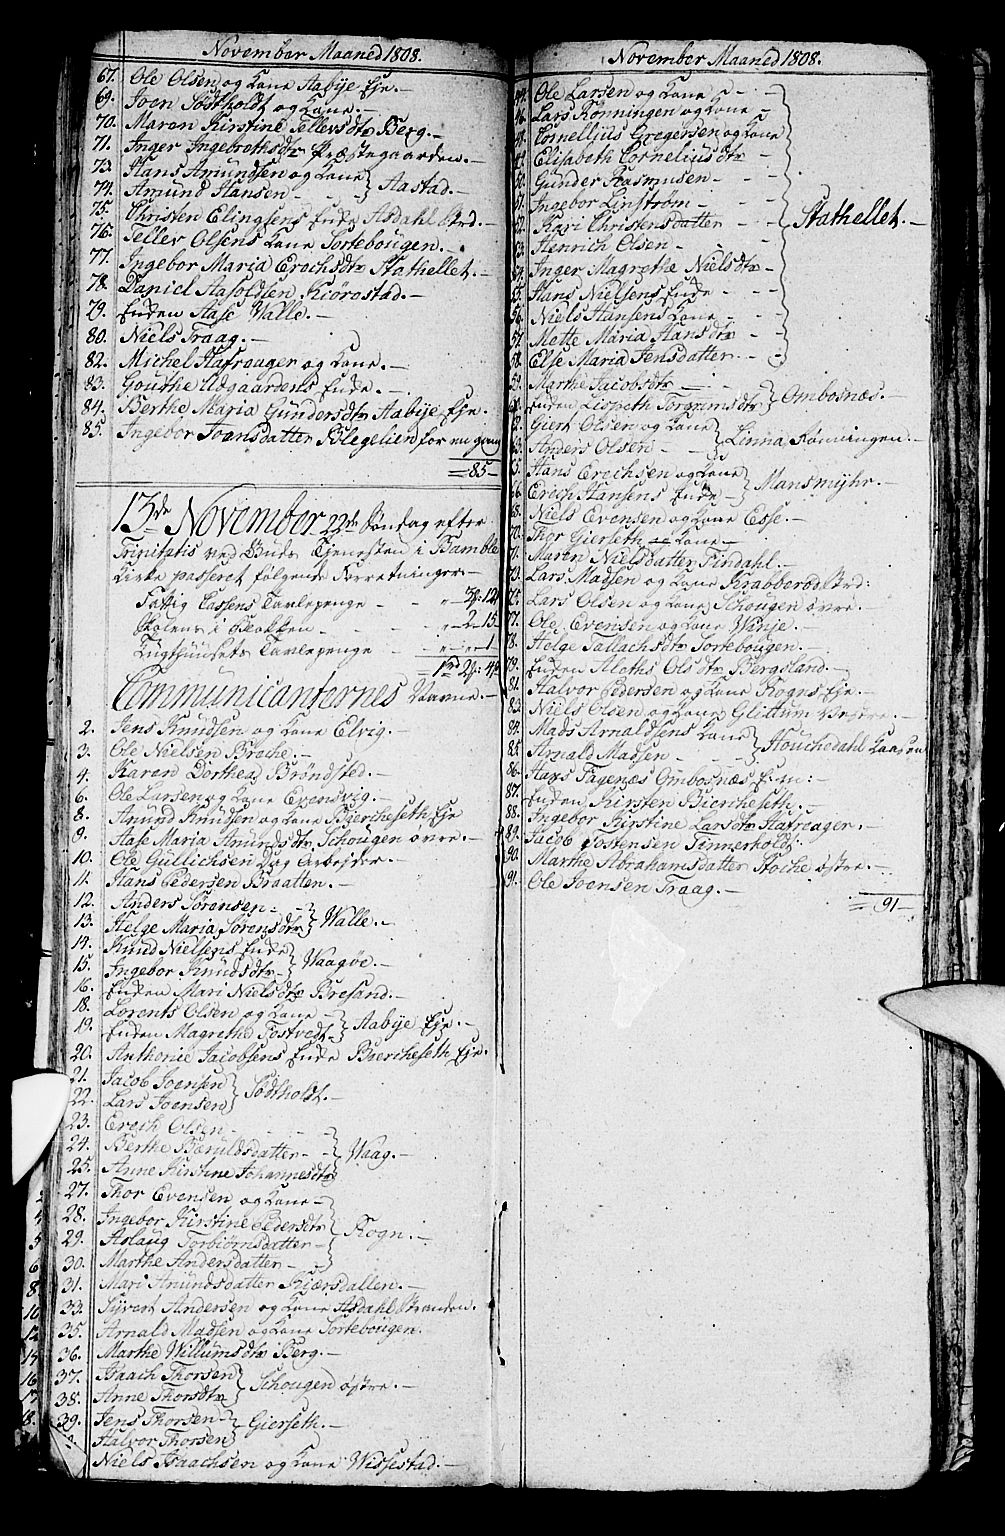 November Maaned 1808.
67. Ole Olsen og Kone Aabÿe Eje.
69. Joen Södtholdt og Kone.
70. Maren Kirstine Tellevsdtr Berg.
71. Inger Ingebrethsdtr Præstegaarden.
73. Hans Amundsen og Kone
74. Amund Hansen } Aastad.
75. Christen Elingsens Enke Asdahl Strd.
76. Tellev Olsens Kone Sortebougen.
77. Ingebor Maria Erechsdtr Stathellet.
78. Daniel Aasoldsen Kiörostad.
79. Enken Aase Walle.
80. Niels Traag.
82. Michel Hafsager og Kone.
83. Gouthe Udgaardens Enke.
84. Berthe Maria Gundersdtr Aabÿe Eje.
85. Ingebor Joensdatter Blegelien for en gang
= 85
13de November 22de Söndag efter
Trinitatis ved Guds Tjenesten i Bamble
Kirke passeret fölgende Forretninger
Fattig Cassens Tavlepenge - - 3 : 12
Skolens i Blokken - 2 - 15
Tugthuusets Tavlepenge - - 1
Communicanternes Navne.
2. Jens Knudsen og Kone Elvig.
3. Ole Nielsen Broche.
4. Karen Dorthea Bröndsted.
6. Ole Larsen og Kone Evensvig.
8. Amund Knudsen og Kone Biercheseth Eje
9. Aase Maria Amundsdtr Schougen övre.
10. Ole Gullichsen Dag Arbejder.
11. Hans Pedersen Braatten.
12. Anders Sörensen
13. Helge Maria Sörensdtr } Walle.
14. Knud Nielsens Enke
15. Ingebor Knudsdtr } Waagöe.
16. Enken Mari Nielsdtr Bresand.
18. Lorents Olsen og Kone
19. Enken Magrethe Tostvedt } Aabÿe Eje.
20. Anthonie Jacobsens Enke Biercheseth Eje.
21. Jacob Joensen
22. Lars Joensen } Södtholdt.
23. Erech Olsen
24. Berthe Baruldsdatter } Waag.
25. Anne Kirstine Johannesdtr
27. Thor Evensen og Kone
28. Ingebor Kirstine Pedersdtr
29. Aslaug Torbiörnsdatter } Rogn.
30. Marthe Andersdatter
31. Mari Amundsdatter Biersdallen.
33. Sÿvert Andersen og Kone Asdahl Stranden.
35. Arnold Madsen og Kone Sortebougen.
36. Marthe Willumsdtr Berg.
37. Isaach Thorsen
38. Anne Thorsdtr } Schougen östre.
39. Jens Thorsen
Halvor Thorsen } Gierseth.
Niels Isaachsen og Kone Wissestad.
November Maaned 1808.
44. Ole Larsen og Kone
46. Lars Rönningen og Kone
48. Cornelljus Gregersen og Kone
49. Elisabeth Corneliusdtr
50. Gunder Rasmusen
51. Ingebor Linström
52. Kari Christensdatter } Stathellet.
53. Henrich Olsen
54. Inger Magrethe Nielsdtr
55. Hans Nielsens Enke
56. Niels Hansens Kone
57. Mette Maria Hansdtr
58. Else Maria Jensdatter
59. Marthe Jacobsdtr
Enken Lispeth Torgrimsdtr } Ombosnæs.
62. Giert Olsen og Kone
63. Anders Olsen } Linna Rönningen.
65. Hans Erechsen og Kone
66. Erech Hansens Enke } Mansmÿhr.
68. Niels Evensen og Kone Esse.
70. Thor Gierseth og Kone
71. Maren Nielsdatter Findahl.
73. Lars Madsen og Kone Krabberöd Strd:
75. Lars Olsen og Kone Schougen övre.
77. Ole Evensen og Kone Winje.
78. Helge Tallachsdtr Sortebougen.
79. Enken Alethe Olsdtr Bergsland.
81. Halvor Pedersen og Kone Rogns Eje.
83. Niels Olsen og Kone Glittum Vestre.
84. Mads Arnoldsens Kone
85. Arnold Madsen } Houchedahl
86. Hans Tagenæs Ombosnæs E:m:
87. Enken Kirsten Biercheseth.
88. Ingebor Kirstine Larsdtr Hafsager.
89. Jacob Tostensen Tinnerholdt.
90. Marthe Abrahamsdatter Stoche östre.
91. Ole Joensen Traag.
= 91